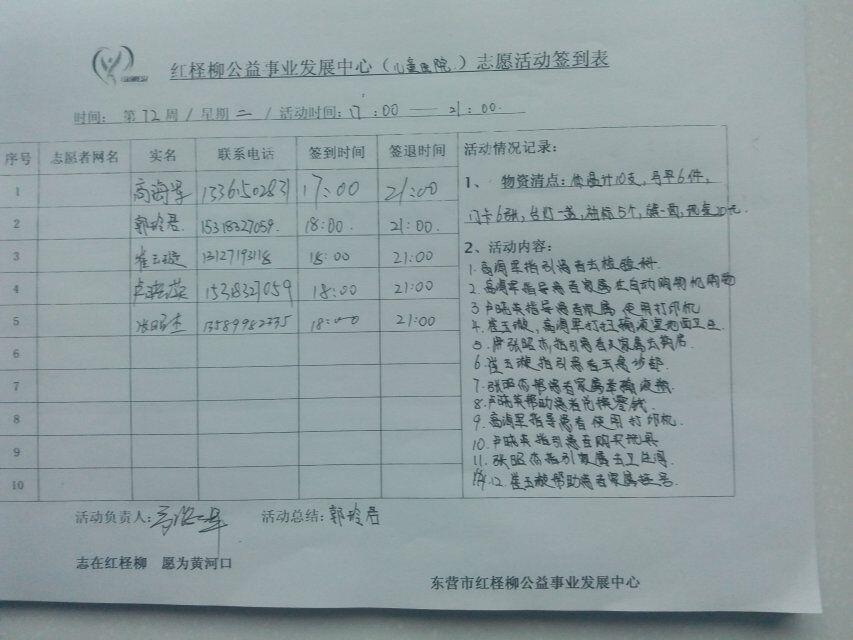 红柽柳公益事业发展中心（儿童医院）志愿活动签到表
时间：第72周 / 星期二 / 活动时间：17:00 — 21:00
序号 志愿者网名 实名 联系电话 签到时间 签退时间
1 高海军 17:00 21:00
2 郭玲君 15318327059 18:00 21:00
3 崔玉璇 13127193118 18:00 21:00
4 卢晓英 18:00 21:00
5 张昭杰 13589982335 18:00 21:00
6
7
8
9
10
活动情况记录：
1、 物资清点：体温计10支，马甲6件，
门卡6张，台灯一盏，
2、活动内容：
1.高海军指引患者去检验科.
2.高海军指导患者家属在自动购物机购物
3.卢晓英指导患者家属使用打印机
4.崔玉璇，高海军打扫输液室地面卫生
5.张昭杰指引患者家属去
6.崔玉璇指引患者去急诊部
7.张昭杰帮患者家属拿输液瓶
8.卢晓英帮助患者兑换零钱
9.高海军指导患者使用打印机.
10.卢晓英指引患者购买玩具
11.张昭杰指引家属去卫生间.
12.崔玉璇帮助患者家属挂号
活动负责人：高海军 活动总结：郭玲君
志在红柽柳 愿为黄河口
东营市红柽柳公益事业发展中心